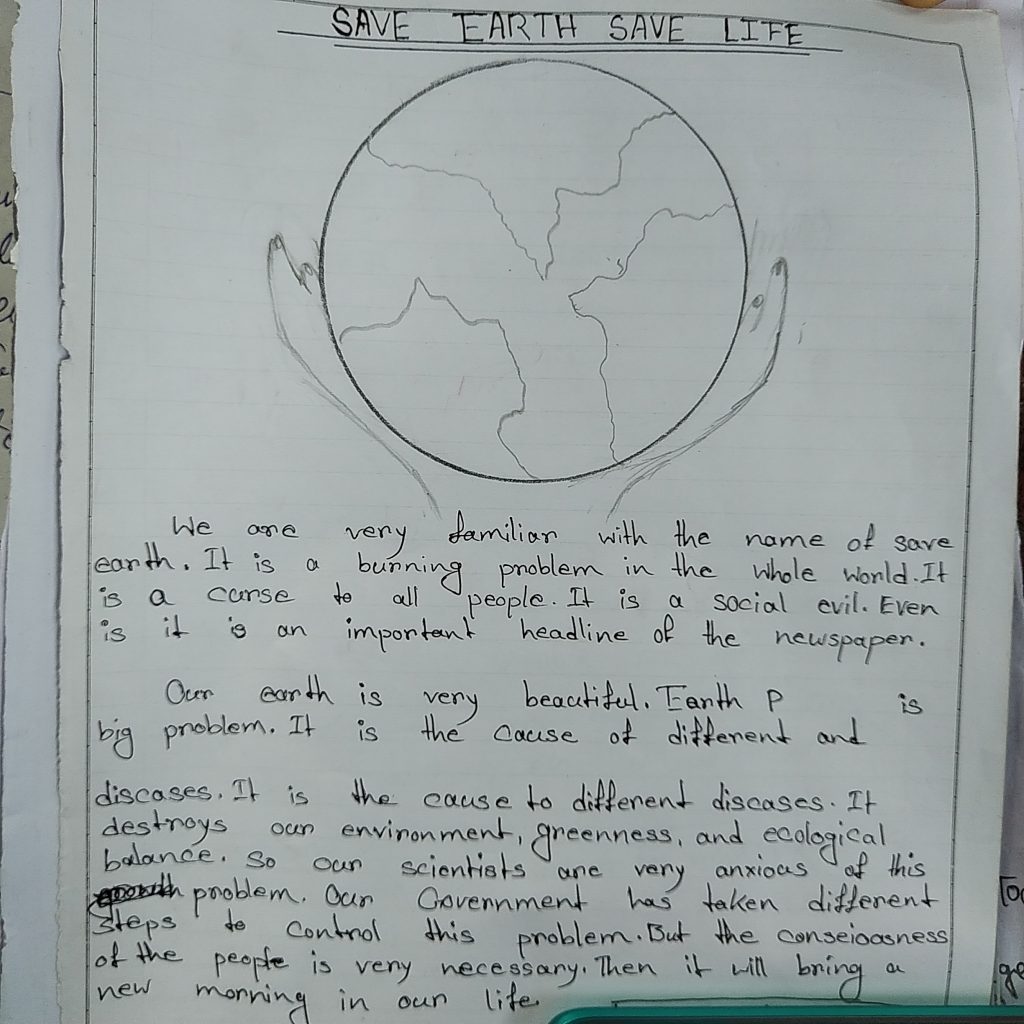 SAVE EARTH SAVE LIFE
We are very familiar with the name of save
earth. It is a burning problem in the whole world. It
is a curse to all people. It is a social evil. Even
is it is an important headline of the newspaper.
Our earth is very beautiful. Earth P is
big problem. It is the cause of different and
discases. It is the cause to different discases. It
destroys our environment, greenness, and ecological
balance. So our scientists are very anxious of this
problem. Our Government has taken different
steps to control this problem. But the conseiousness
of the people is very necessary. Then it will bring a
new morning in our life